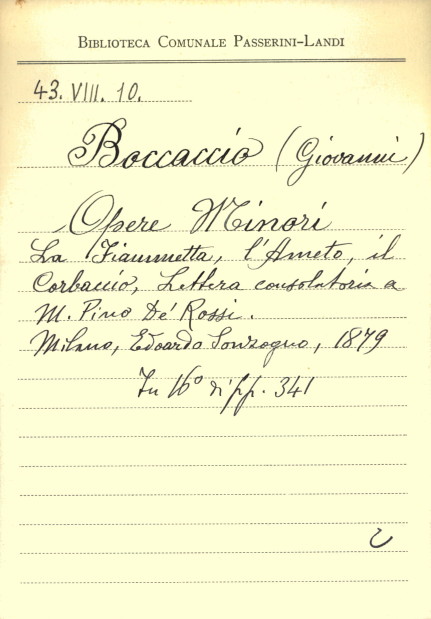 BIBLIOTECA COMUNALE PASSERINI-LANDI
43. VIII. 10.
Boccaccio (Giovanni)
Opere Minori
La Fiammetta, l'Ameto, il
Corbaccio, Lettera consolatoria a
M. Pino De' Rossi.
Milano, Edoardo Sonzogno, 1879
In 16° di pp. 341